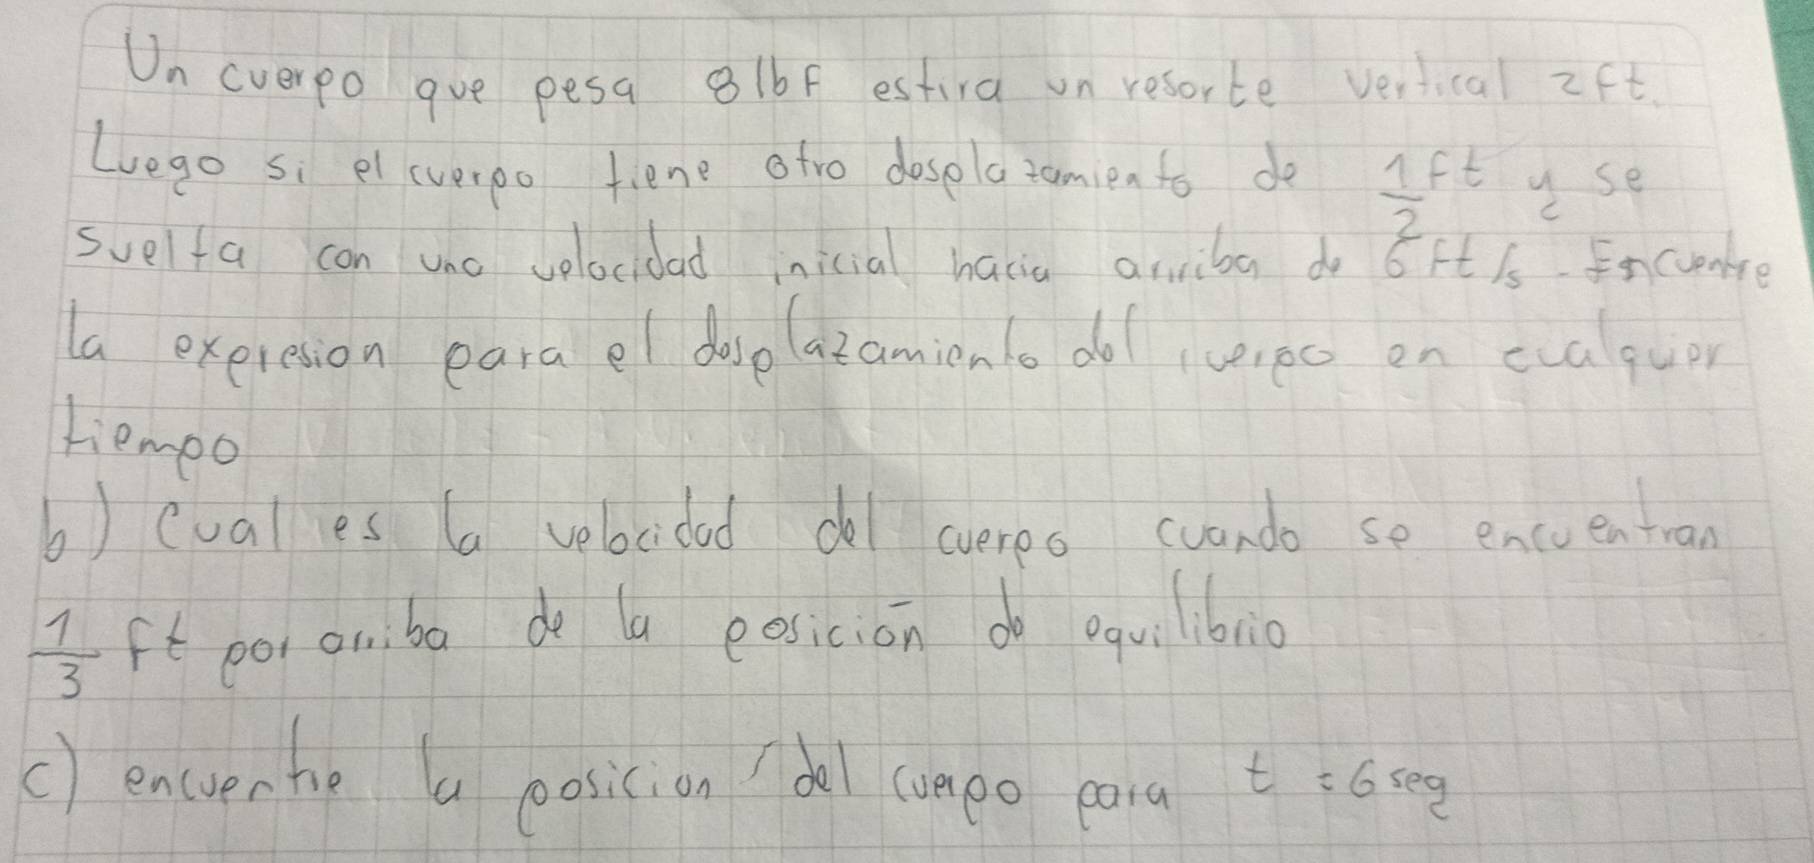 Un cuerpo que pesa 8lbf estira un resorte vertical 2ft.
Luego si el cuerpo tiene otro desplazamiento de 1/2 ft y se
suelta con una velocidad inicial hacia arriba de 6ft/s. Encuentre
la expresion para el desplazamiento del cuerpo en cualquier
tiempo
b) Cual es la velocidad del cuerpo cuando se encuentran
1/3 ft por arriba de la posición de equilibrio
c) encuentre la posicion del cuerpo para t = 6 seg